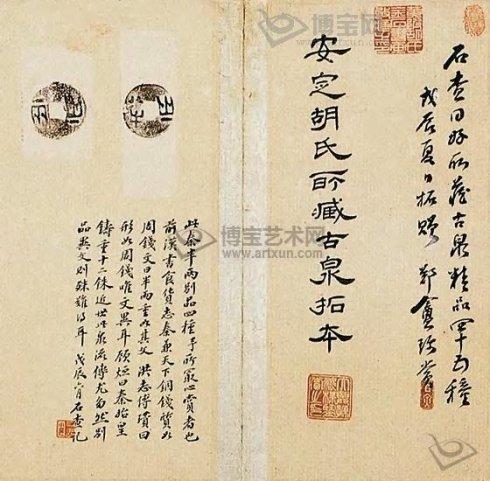 石查同好所藏古泉精品四十五種
戊辰夏日拓贈
安定胡氏所藏古泉拓本
半兩
此秦半兩別品四種予所最心賞者也
前漢書食貨志秦兼天下銅錢質如
周錢文曰半兩重如其文 洪志傅瓚曰
形如周錢唯文異耳顧烜曰秦始皇
鑄重十二銖近世此泉流傳尤多然別
品異文則殊難得耳 戊辰 石查記
博宝艺术网
www.artxun.com